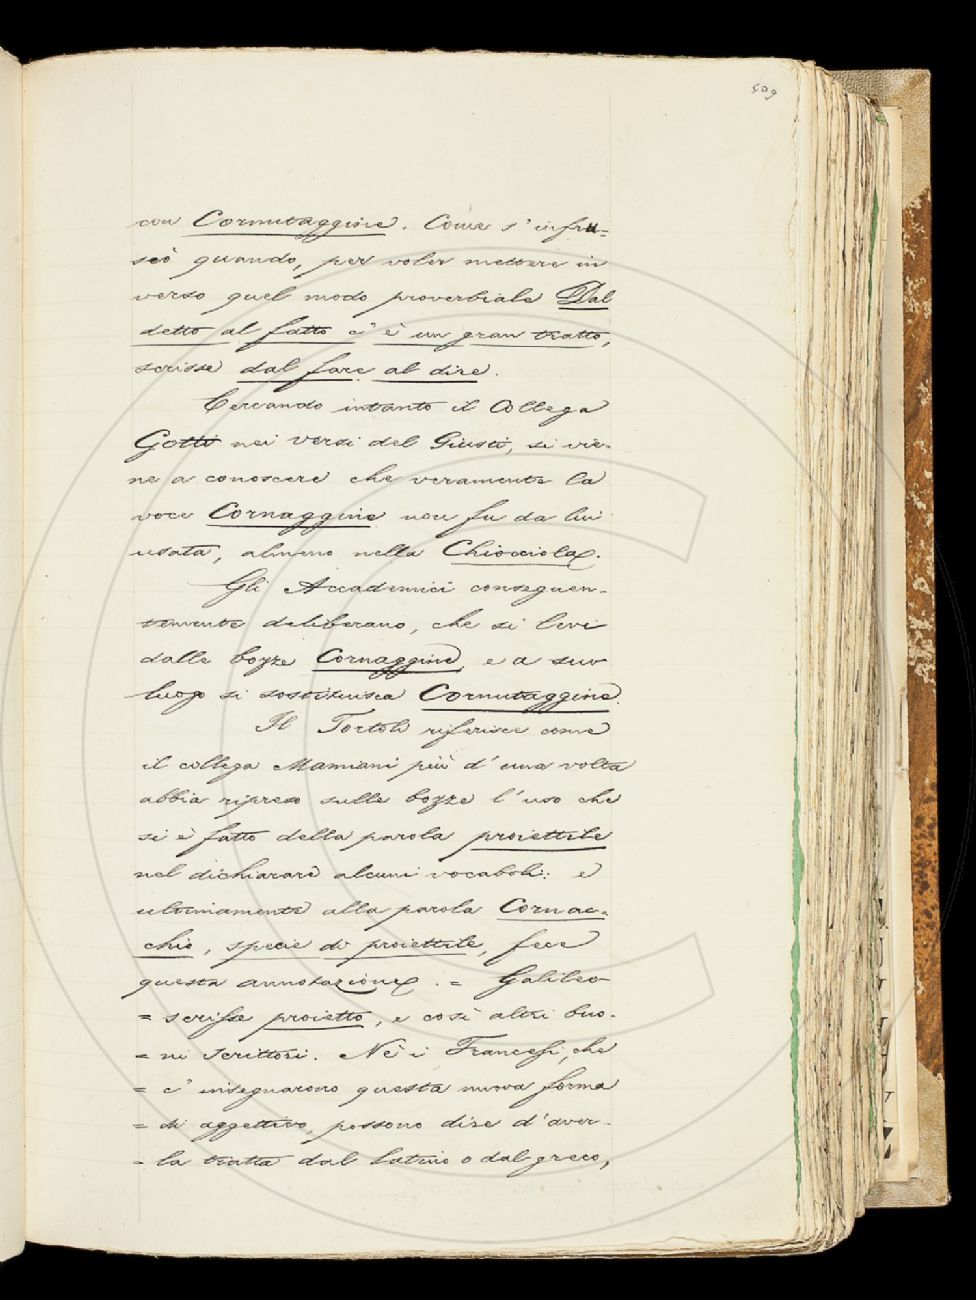 409
con Cornutaggine. Come s'infru=
sciò quando, per voler mettere in
verso quel modo proverbiale Dal
detto al fatto c'è un gran tratto,
scrisse dal fare al dire.
Cercando intanto il Collega
Gotti nei versi del Giusti, si vie-
ne a conoscere che veramente la
voce Cornaggine non fu da lui
usata, almeno nella Chiocciola.
Gli Accademici conseguen-
temente deliberano, che si levi
dalle bozze Cornaggine, e a suo
luogo si sostituisca Cornutaggine.
Il Tortoli riferisce come
il collega Mamiani più d'una volta
abbia ripreso sulle bozze l'uso che
si è fatto della parola proiettile
nel dichiarare alcuni vocaboli: e
ultimamente alla parola Cornac=
chio, specie di proiettile, fece
questa annotazione. = Galileo
= scrisse proietto, e così altri buo-
= ni scrittori. Nè i Francesi, che
= c'insegnarono questa nuova forma
= di aggettivo, possono dire d'aver-
= la tratta dal latino o dal greco,